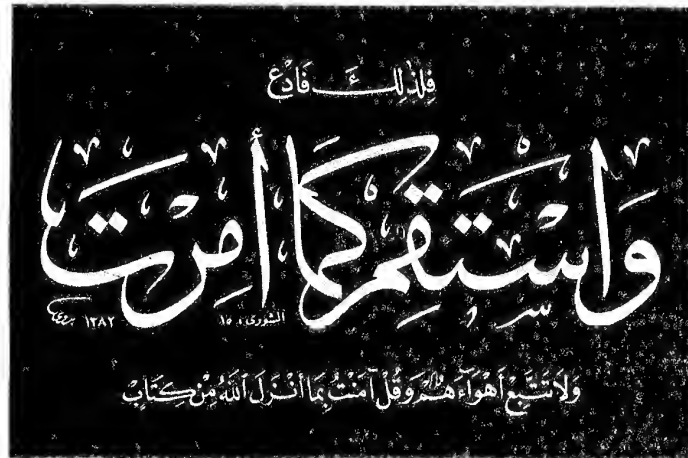 فَلِذَٰلِكَ فَادْعُ
وَاسْتَقِمْ كَمَا أُمِرْتَ
الشورى ١٥ ١٣٨٢
وَلَا تَتَّبِعْ أَهْوَاءَهُمْ وَقُلْ آمَنْتُ بِمَا أَنْزَلَ اللهُ مِنْ كِتَابٍ